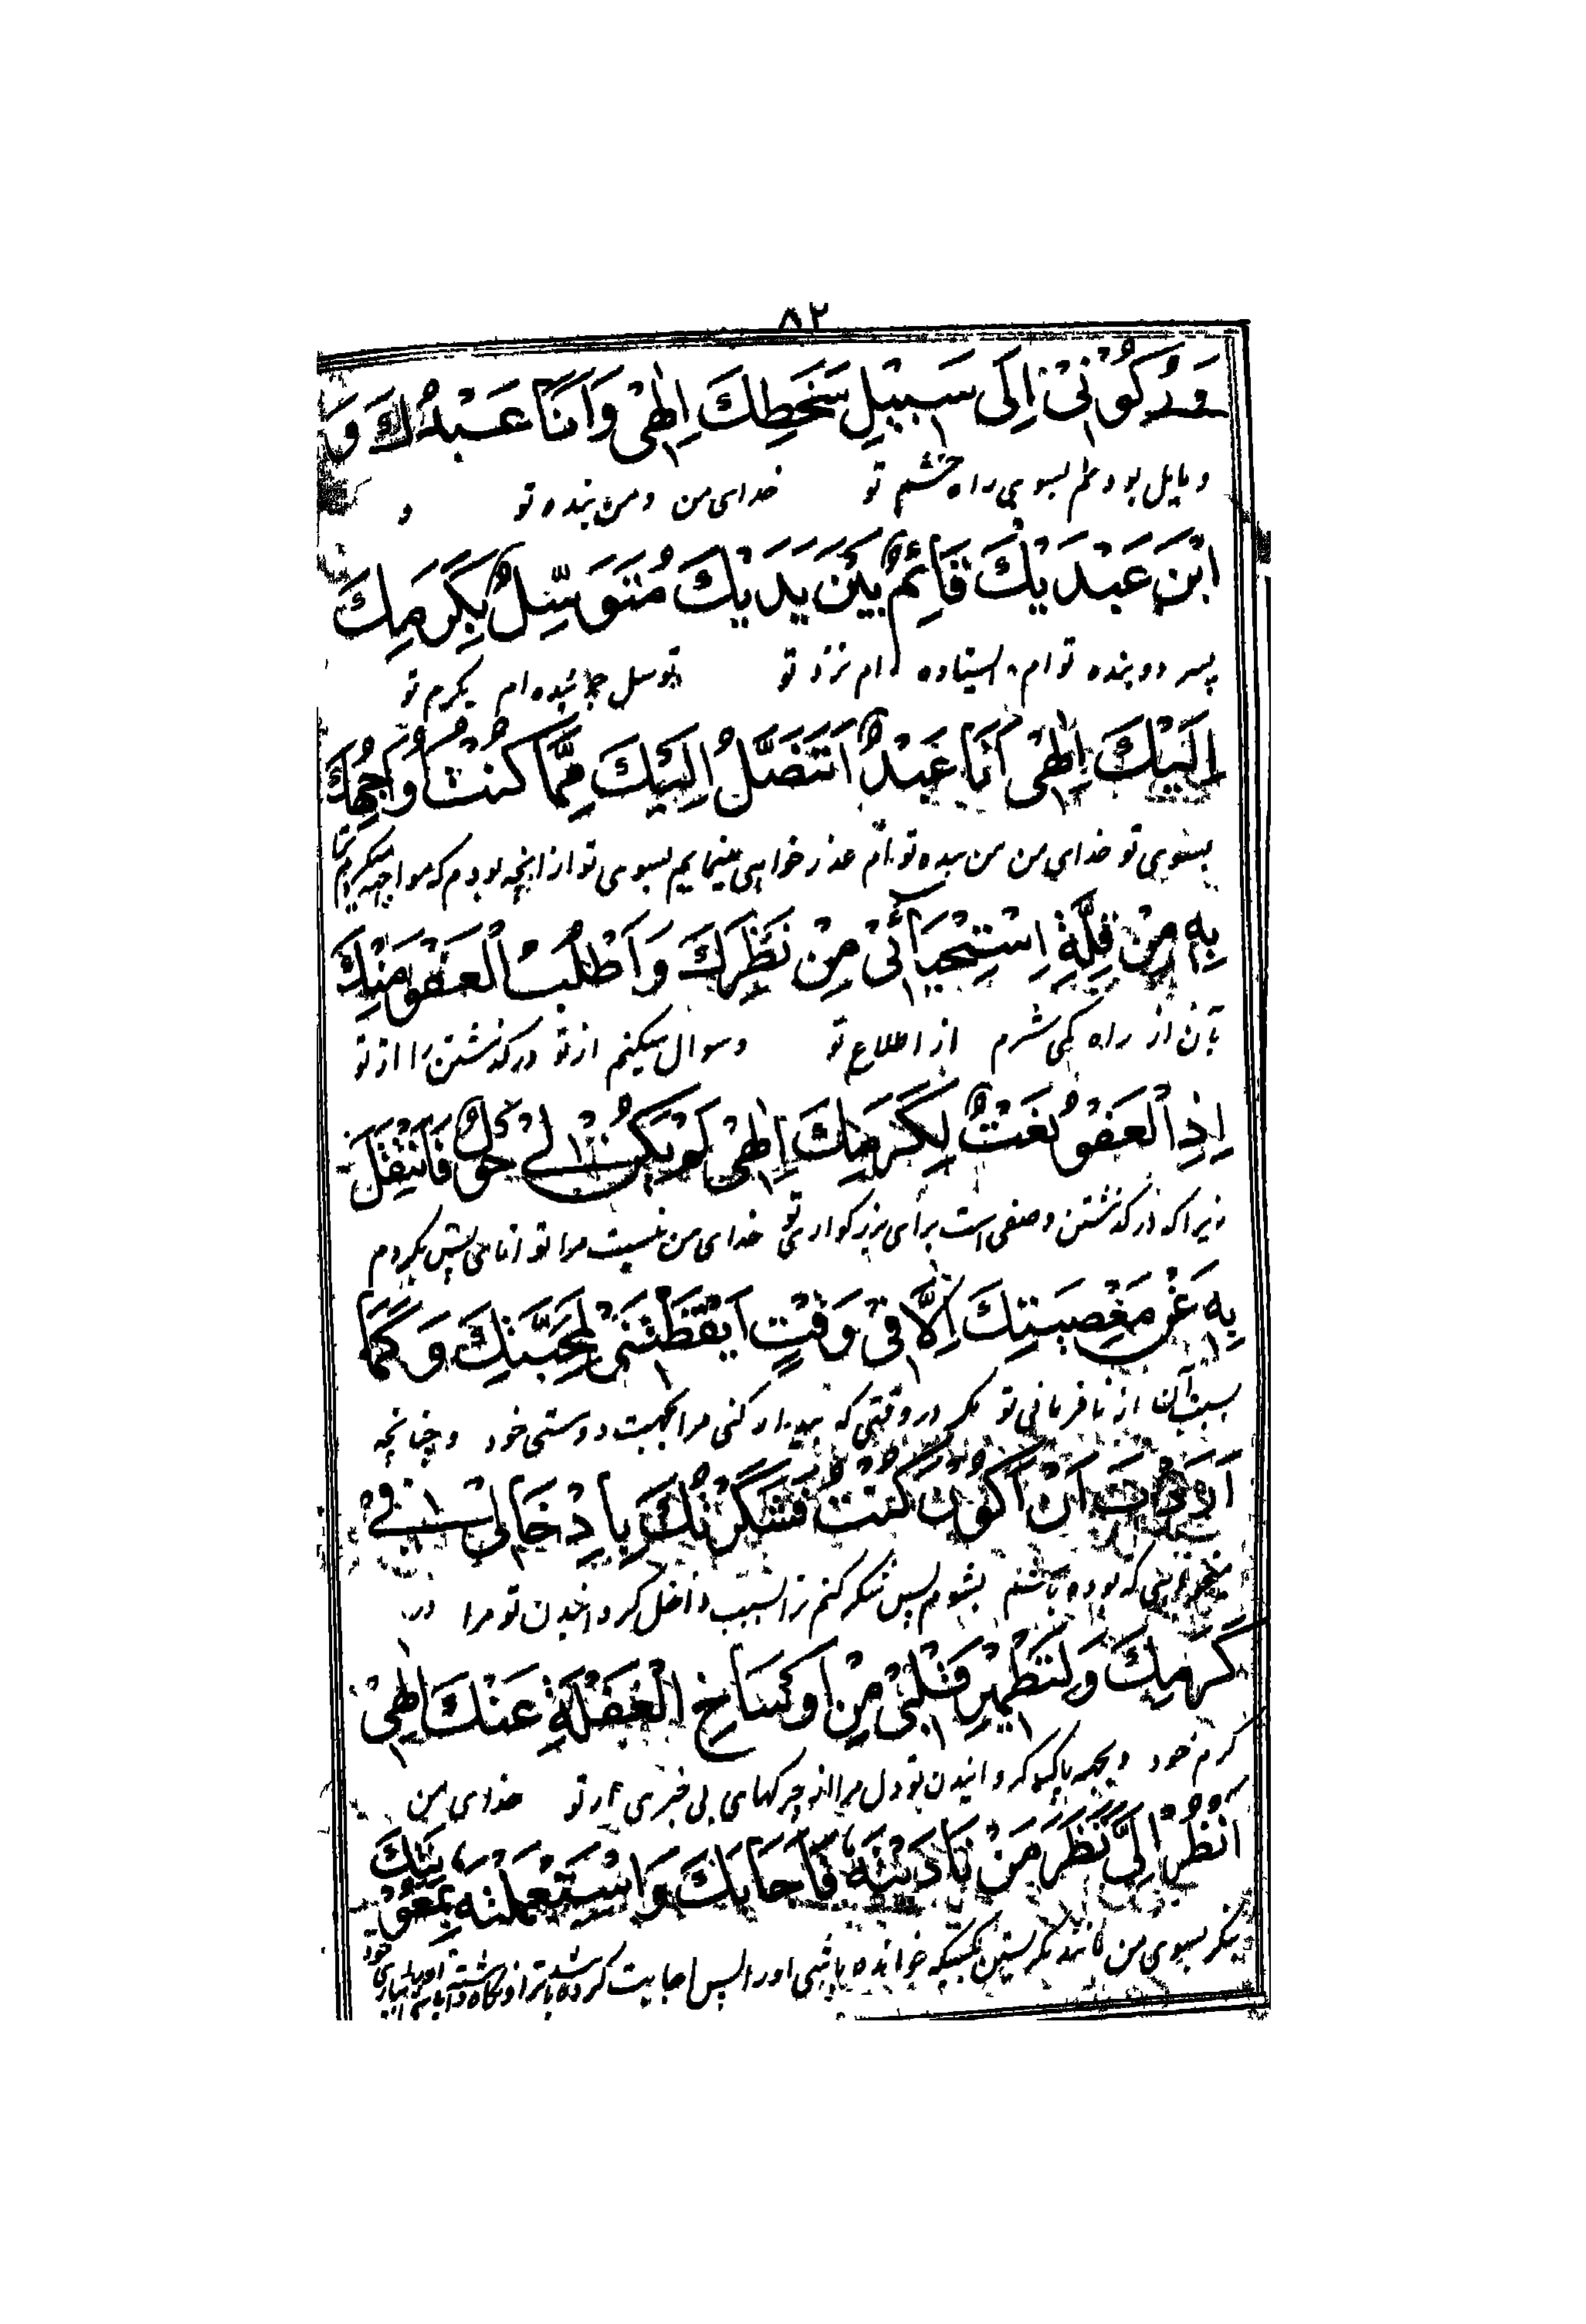 ٨٢
وَرُكُوْنِیْ اِلَی سَبِیْلِ سَخَطِكَ اِلٰهِیْ وَاَنَا عَبْدُكَ وَ
ومایل بودنم بسوی راه خشم تو خدای من ومن بنده تو و
ابْنُ عَبْدَیْكَ قَائِمٌ بَیْنَ یَدَیْكَ مُتَوَسِّلٌ بِكَرَمِكَ
پسر دو بنده توام ایستاده ام نزد تو توسل جوینده ام بکرم تو
اِلَیْكَ اِلٰهِیْ اَنَا عَبْدٌ اَتَنَصَّلُ اِلَیْكَ مِمَّا كُنْتُ اُوَاجِهُكَ
بسوی تو خدای من من بنده توام عذر خواهی مینمایم بسوی تو از انچه بودم که مواجهه میکردم ترا
بِهِ مِنْ قِلَّةِ اِسْتِحْیَائِیْ مِنْ نَظَرِكَ وَاَطْلُبُ الْعَفْوَ مِنْكَ
بآن از راه کمی شرم از اطلاع تو وسوال میکنم از تو درکذشتن را از تو
اِذِ الْعَفْوُ نَعْتٌ لِكَرَمِكَ اِلٰهِیْ لَمْ یَكُنْ لِیْ حَوْلٌ فَاَنْتَقِلَ
زیراکه درکذشتن وصفی است برای بزرکواری تو خدای من نیست مرا توانائی پس بکردم
بِهِ عَنْ مَعْصِیَتِكَ اِلَّا فِیْ وَقْتٍ اَیْقَظْتَنِیْ لِمَحَبَّتِكَ وَكَمَا
بسبب آن از نافرمانی تو مکر در وقتی که بیدار کنی مرا بجهت دوستی خود وچنانچه
اَرَدْتَ اَنْ اَكُوْنَ كُنْتُ فَشَكَرْتُكَ بِاِدْخَالِیْ فِیْ
که بوده باشم بشوم پس شکر کنم ترا بسبب داخل کردانیدن تو مرا در
كَرَمِكَ وَلِتَطْهِیْرِ قَلْبِیْ مِنْ اَوْسَاخِ الْغَفْلَةِ عَنْكَ اِلٰهِیْ
کرم خود وبجهة پاکیزه کردانیدن تو دل مرا از چرکهای بی خبری از تو خدای من
اُنْظُرْ اِلَیَّ نَظَرَ مَنْ نَادَیْتَهُ فَاَجَابَكَ وَاسْتَعْمَلْتَهُ بِمَعُوْنَتِكَ
بنکر بسوی من مانند نکریستن بکسیکه خوانده باشی اورا پس اجابت کرده باشد ترا